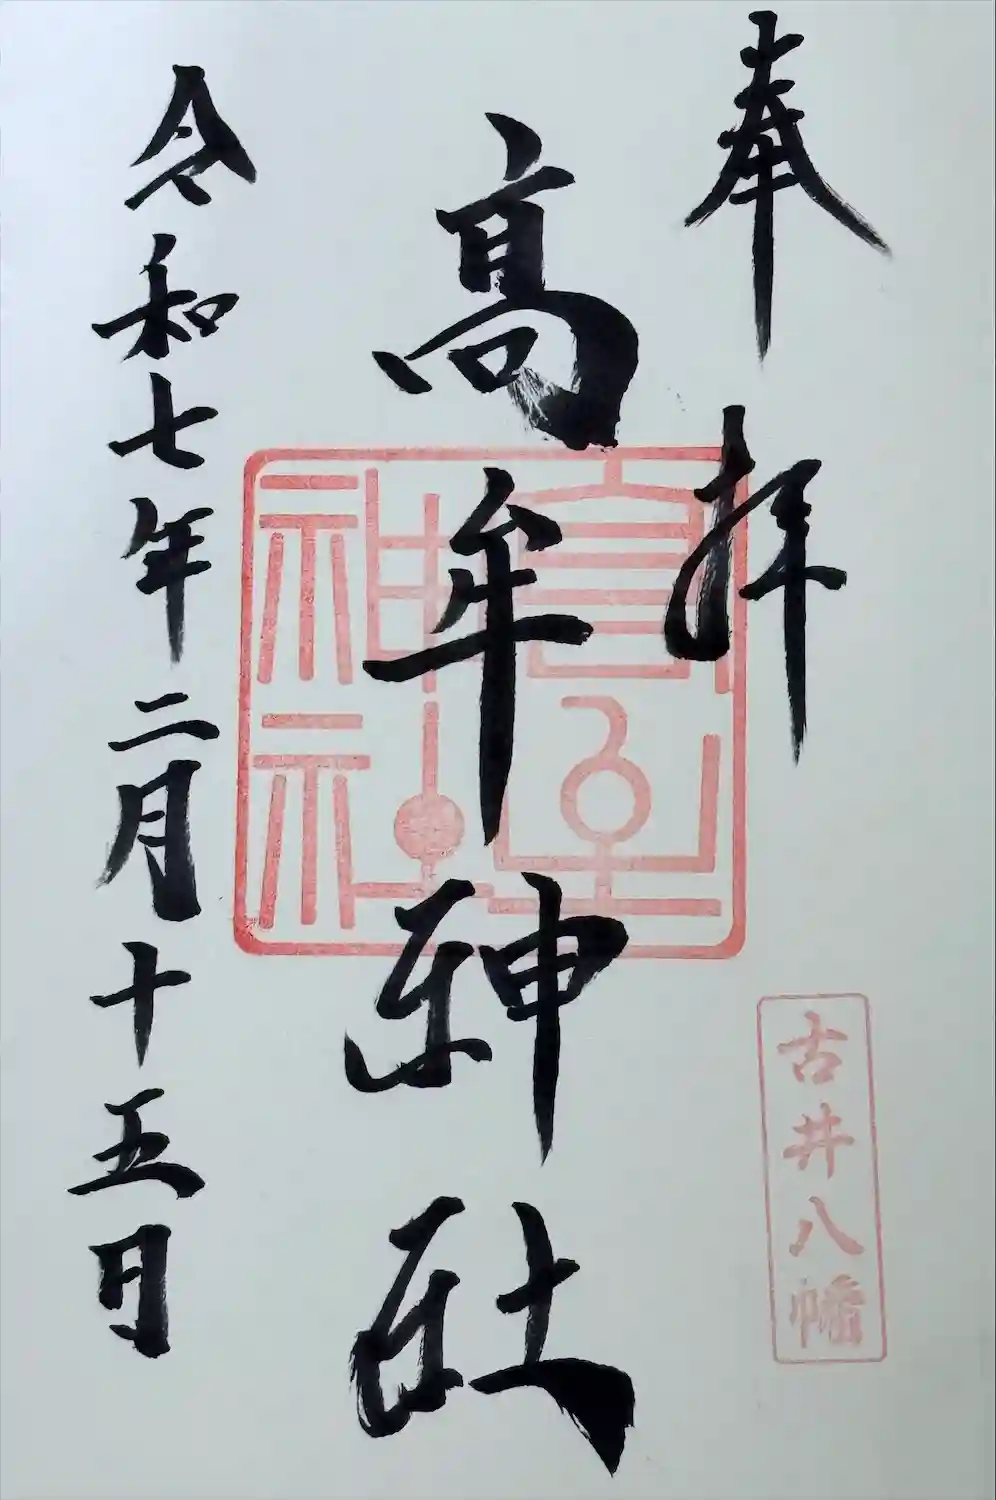 奉拝
古井八幡
髙牟神社
高牟神社
令和七年二月十五日